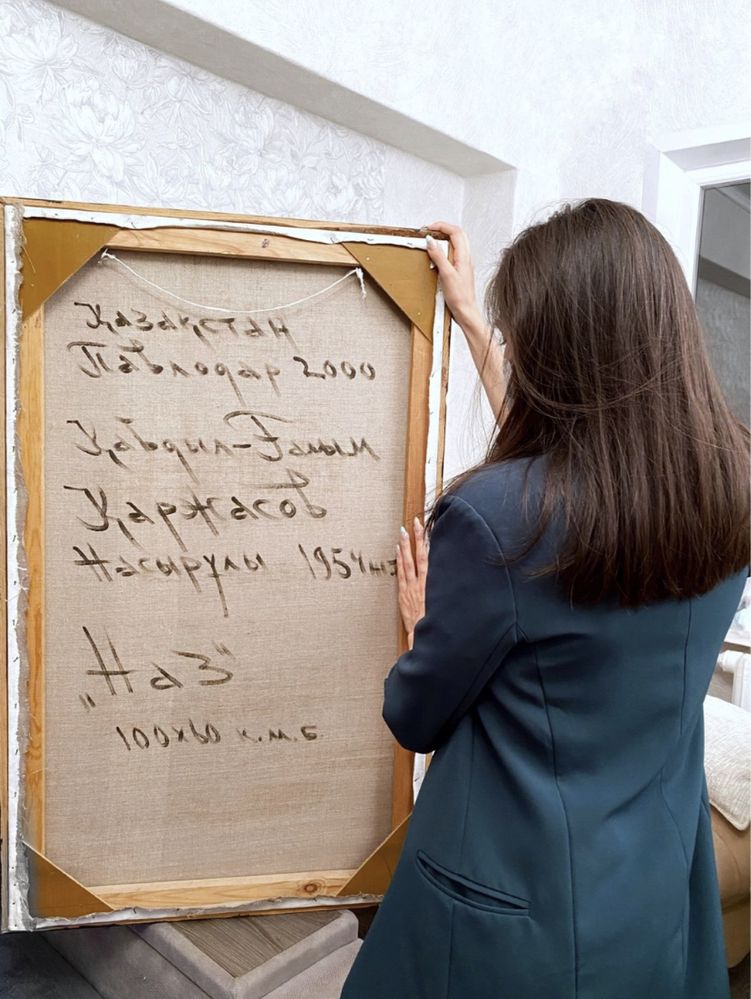 Қазақстан
Павлодар 2000
Қабдыл-Ғалым
Қаржасов
Насырұлы 1954 ж
"Наз"
100х60 к.м.б